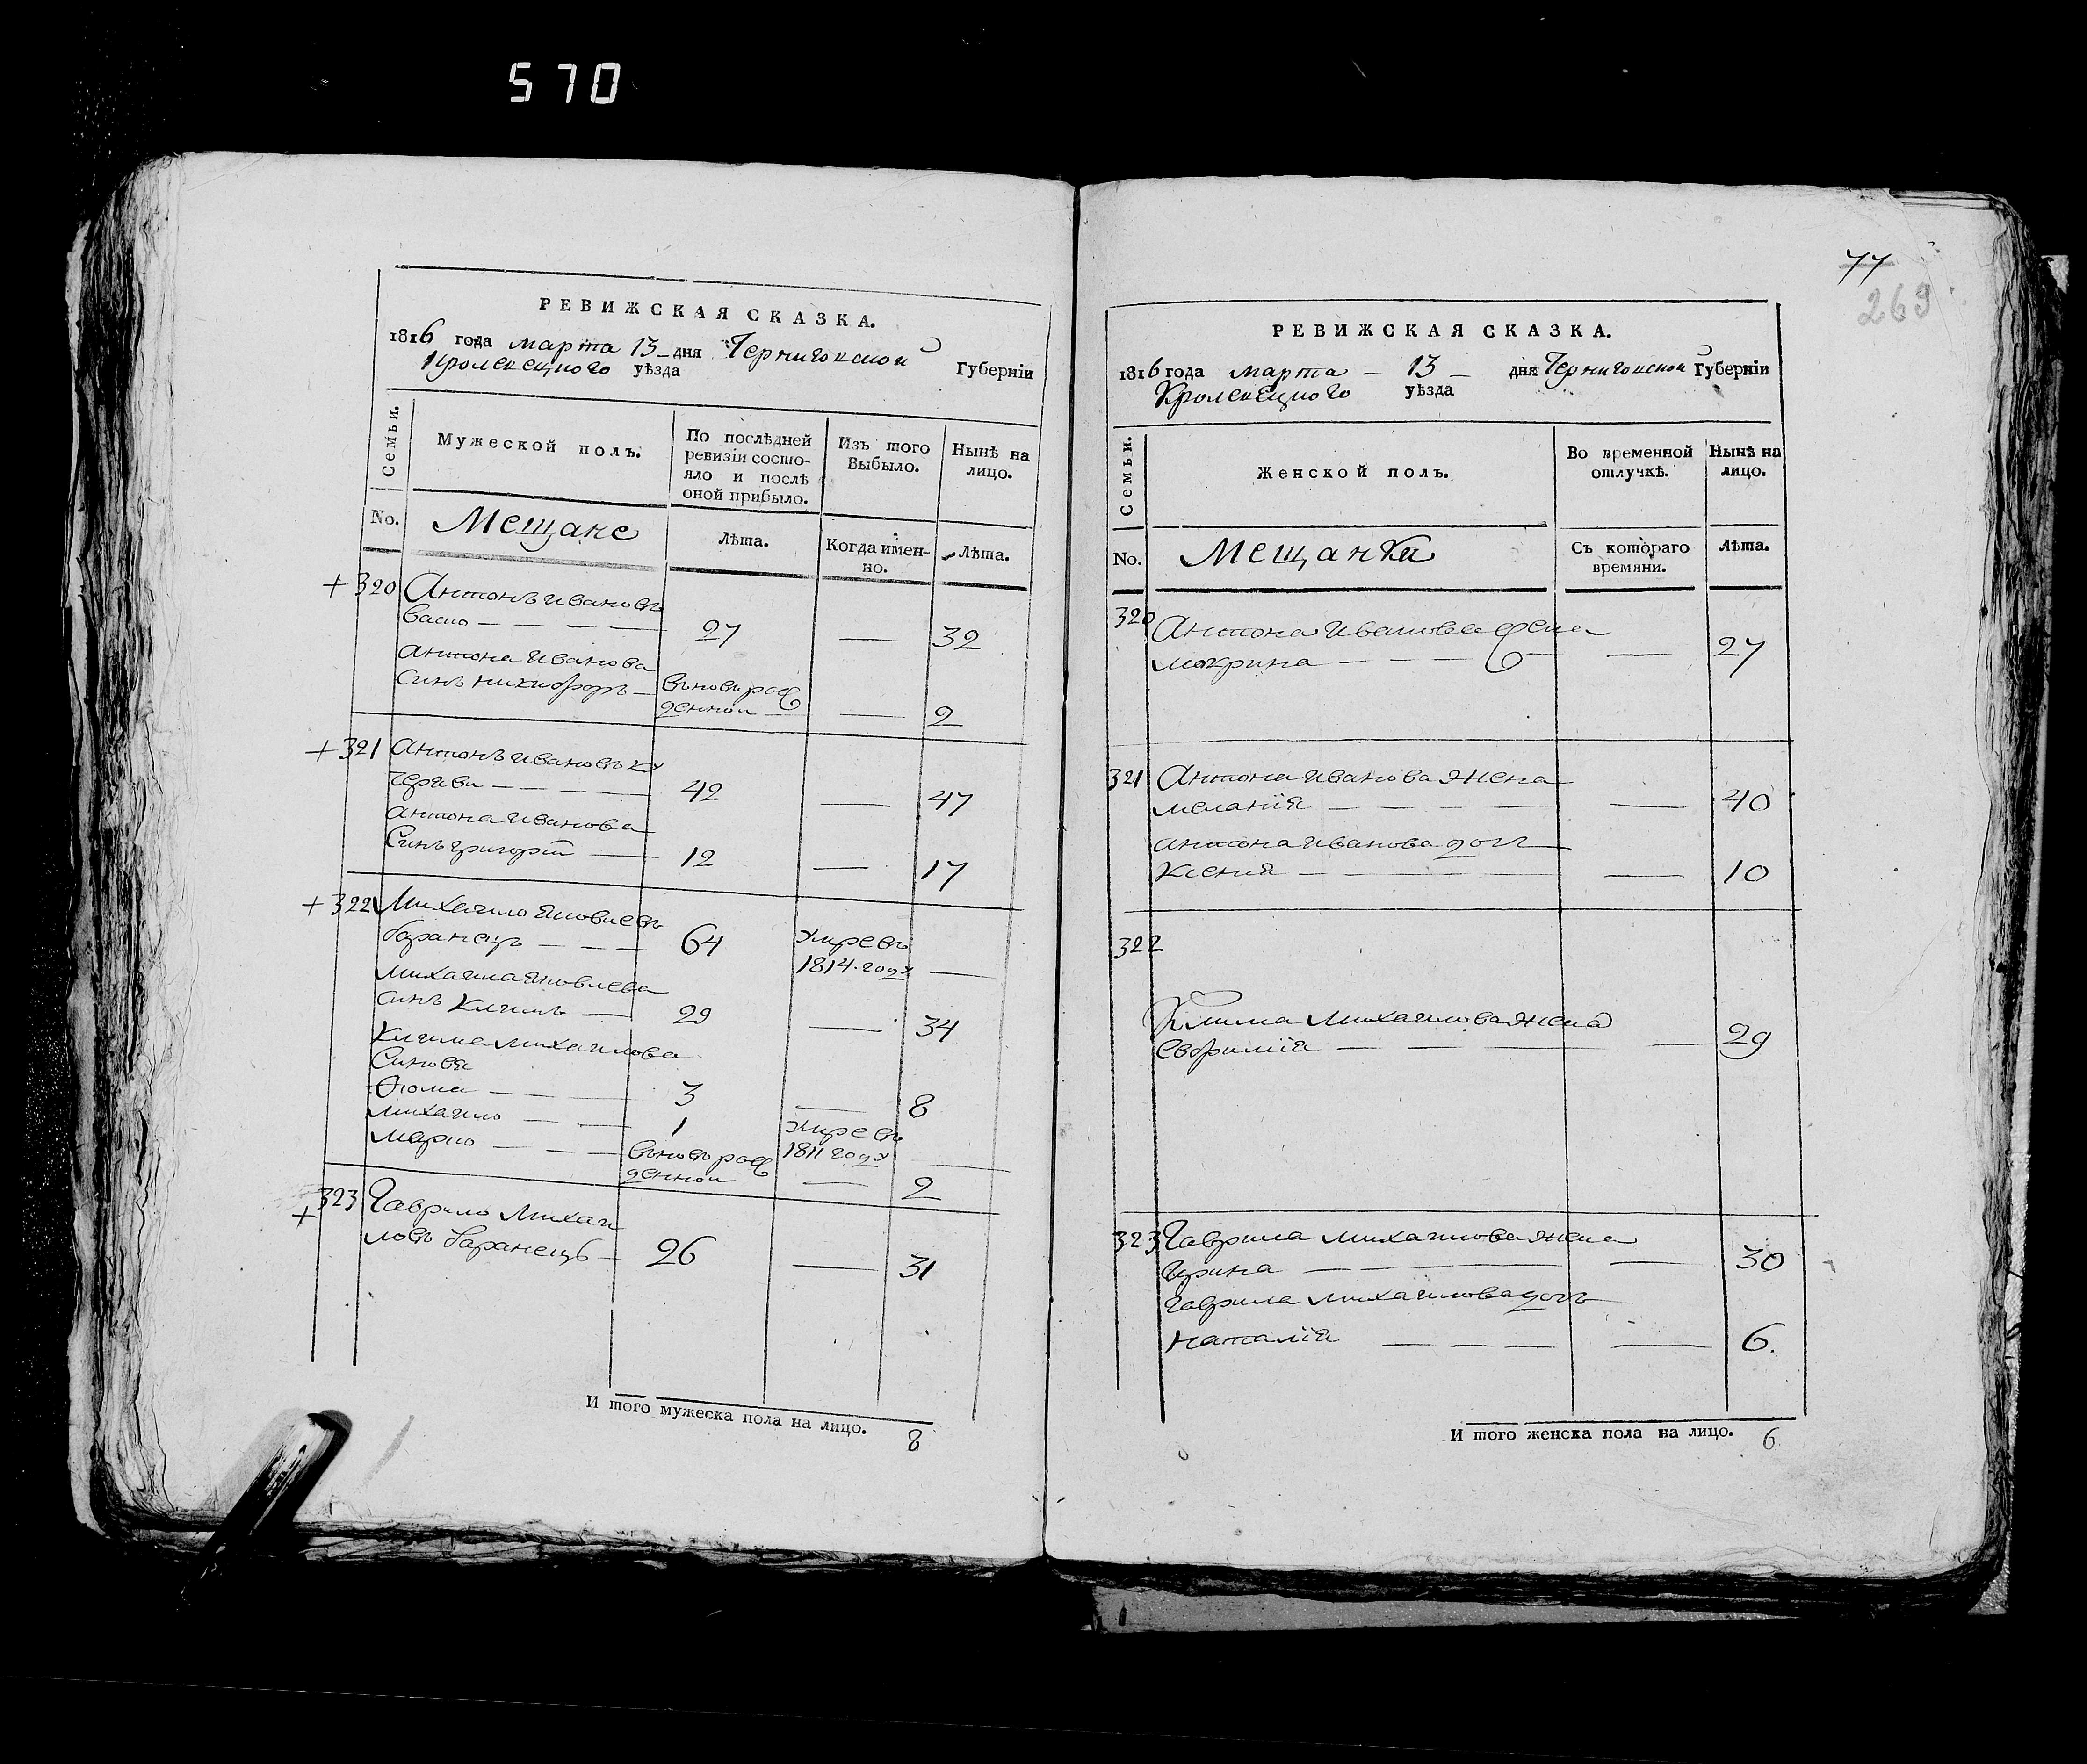 570
РЕВИЖСКАЯ СКАЗКА.
1816 года марта 13 дня Черниговской Губерніи
Кролевецкого уѣзда
Семьи.
Мужеской полъ.
По послѣдней ревизіи состо-
яло и послѣ
оной прибыло.
Изъ того
Выбыло.
Нынѣ на
лицо.
No.
Мещане
Лѣта.
Когда имен-
но.
Лѣта.
+ 320 Антонъ Ивановъ
27 — 32
Антона Иванова
Синъ никифоръ — вновь рож
денной — 2
+ 321 Антонъ Ивановъ Ку
черяви — 42 — 47
Антона Иванова
Синъ григорій — 12 — 17
+ 322 Михайло Яковлевъ
баранецъ — 64 умре въ
1814. году —
Михайла Яковлева
синъ Климъ — 29 — 34
Клима Михайлова
Синовя
Фома — 3 — 8
михайло — 1 умре въ
1811 году —
марко — вновь рож
денной — 2
+ 323 Гаврило Михай
ловъ баранецъ — 26 — 31
И того мужеска пола на лицо. 8
77
269
РЕВИЖСКАЯ СКАЗКА.
1816 года марта — 13 — дня Черниговской Губерніи
Кролевецкого уѣзда
Семьи.
Женской полъ.
Во временной
отлучкѣ.
Нынѣ на
лицо.
No.
Мещанки
Съ котораго
времяни.
Лѣта.
320 Антона Иванова жена
мокрина — — 27
321 Антона Иванова жена
меланія — — 40
антона Иванова доч
Ксения — — 10
322
Клима Михайлова жена
Евфимія — — 29
323 Гаврила михайлова жена
Ирина — — 30
Гаврила михайлова дочъ
наталія — — 6.
И того женска пола на лицо. 6